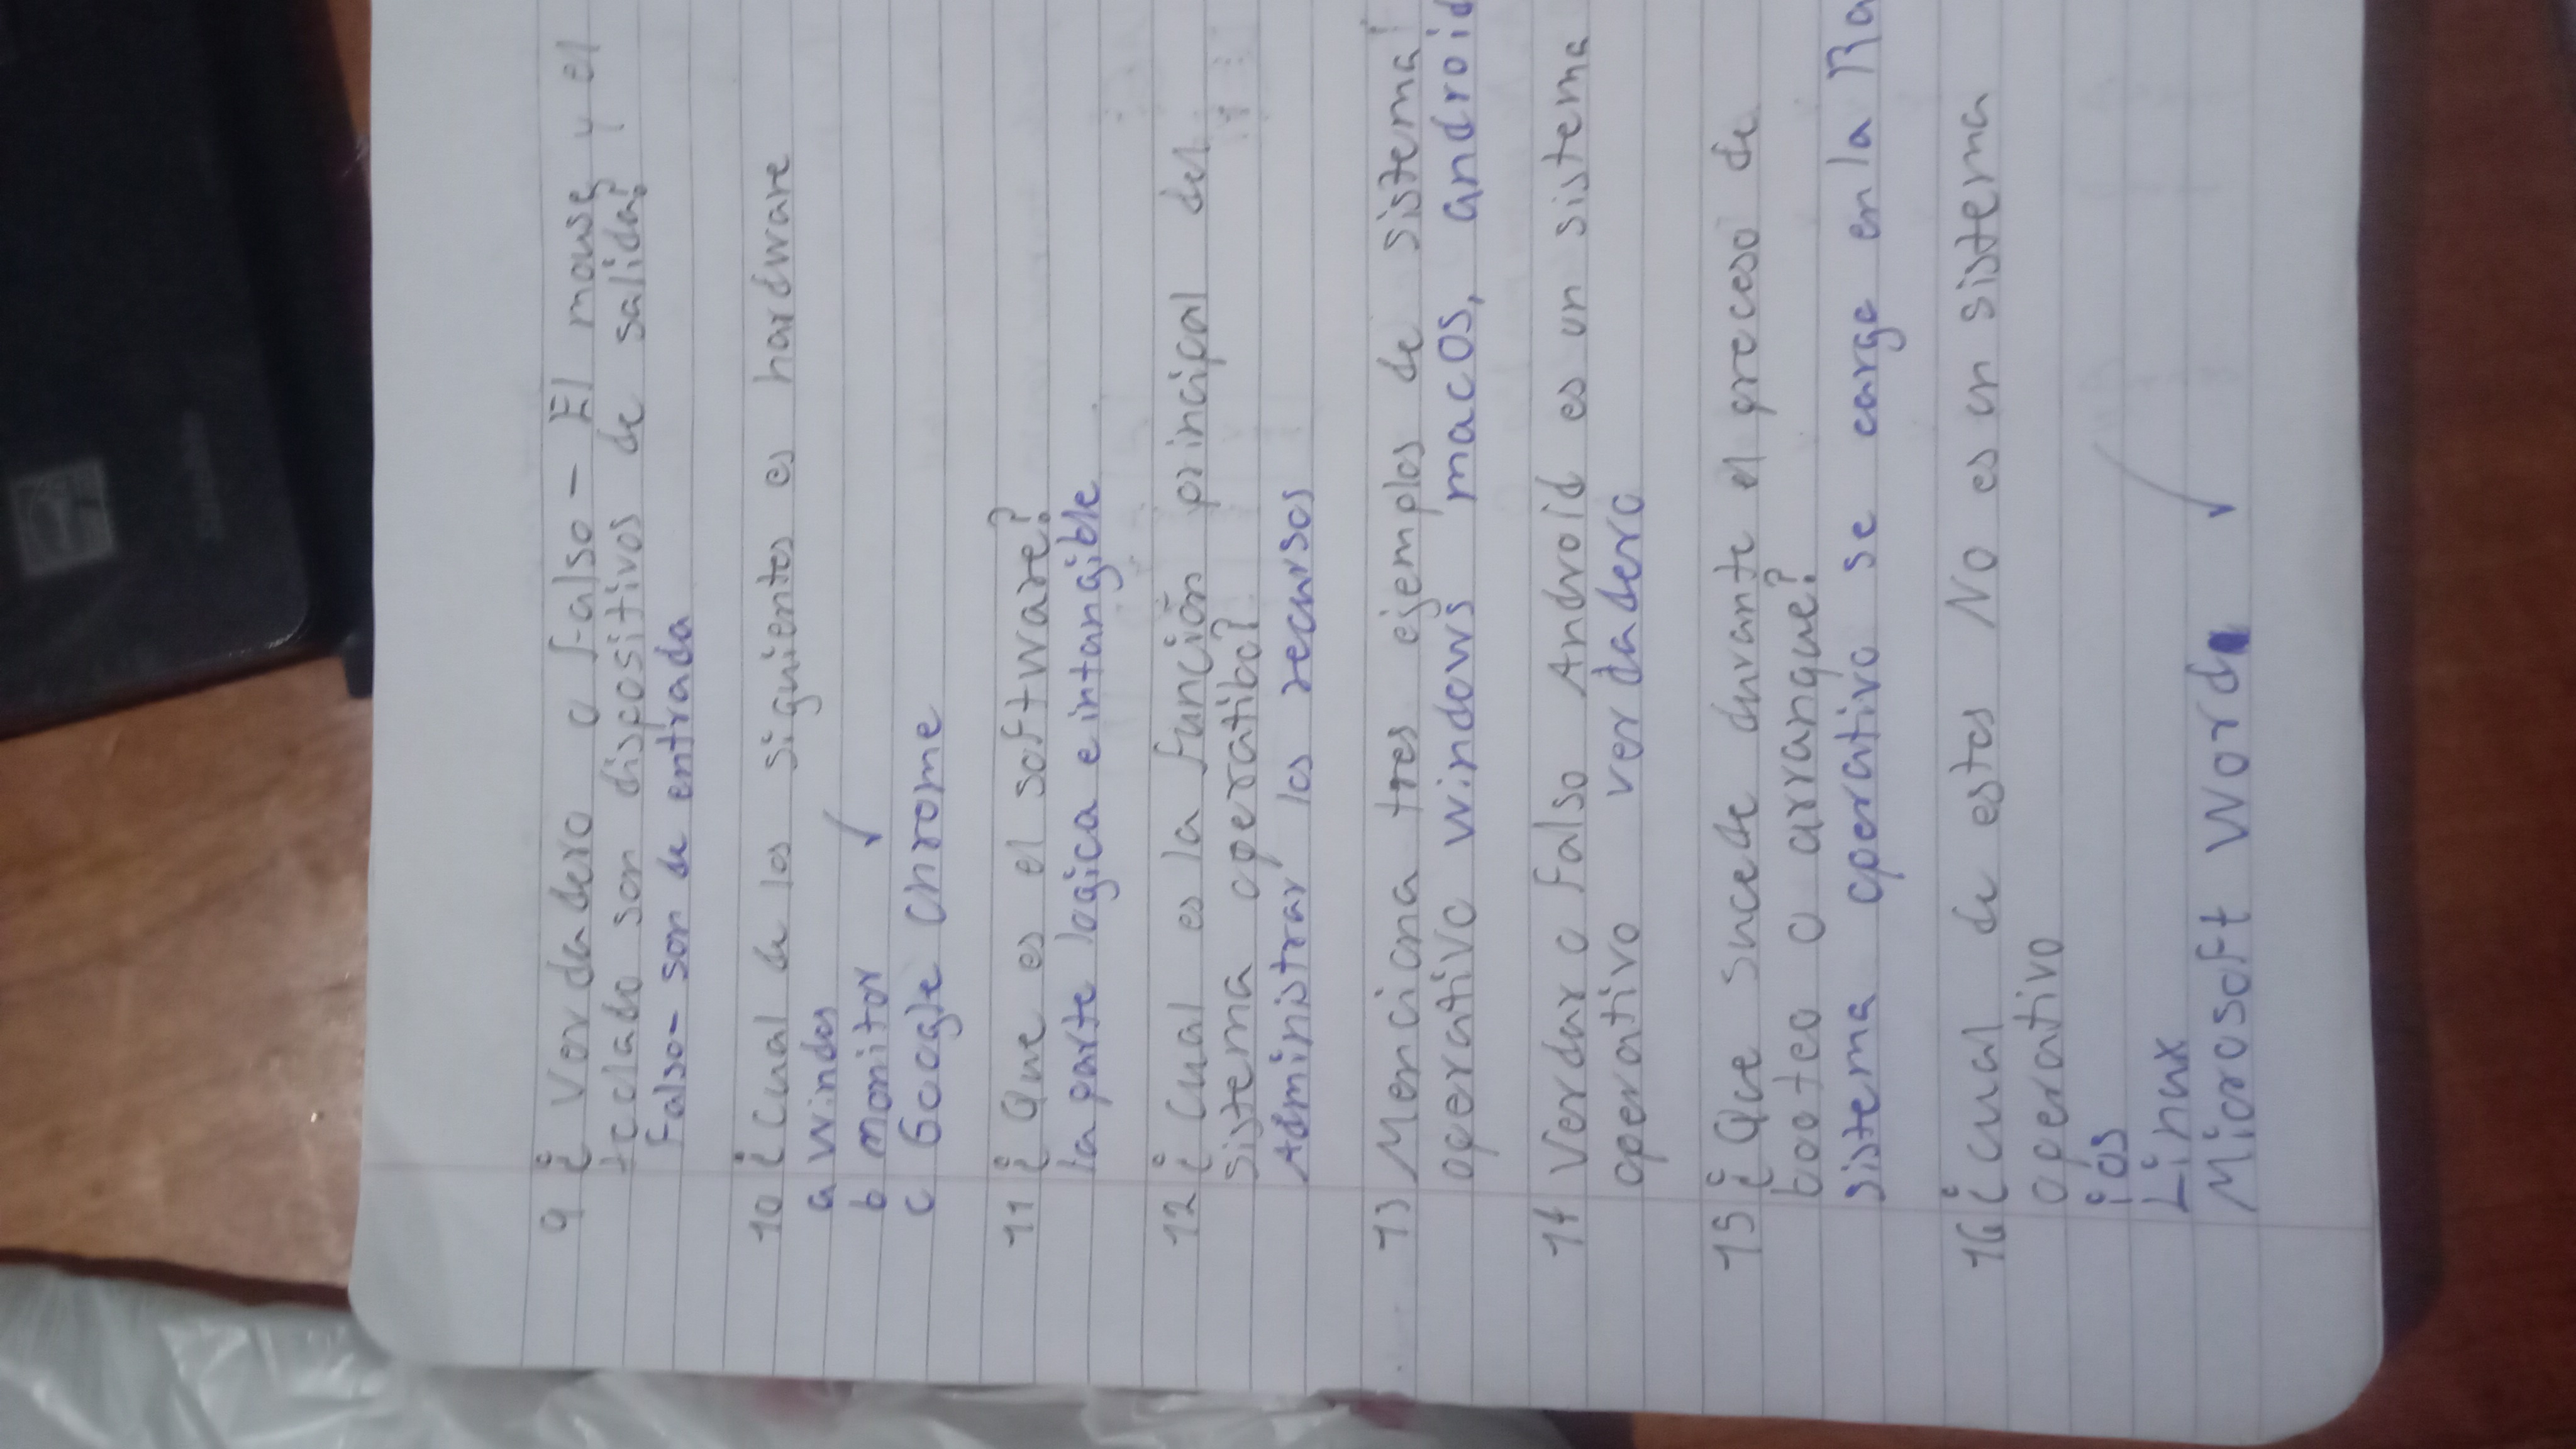 9 ¿ Verdadero o falso - El mouse y el
teclado son dispositivos de salida?
Falso- son de entrada
10 ¿ Cual de los siguientes es hardware
a Windos
b monitor ✓
c Google Chrome
11 ¿ Que es el software?
la parte logica e intangible
12 ¿ Cual es la función principal del
sistema operatibo?
Administrar los recursos
13 Menciona tres ejemplos de sistema
operativo windows macOS, android
14 Verdar o Falso Android es un sistema
operativo verdadero
15 ¿ Que sucede durante el proceso de
booteo o arranque?
sistema operativo se carge en la Ra
16 ¿ cual de estos No es un sistema
operativo
ios
Linux
Microsoft Word ✓